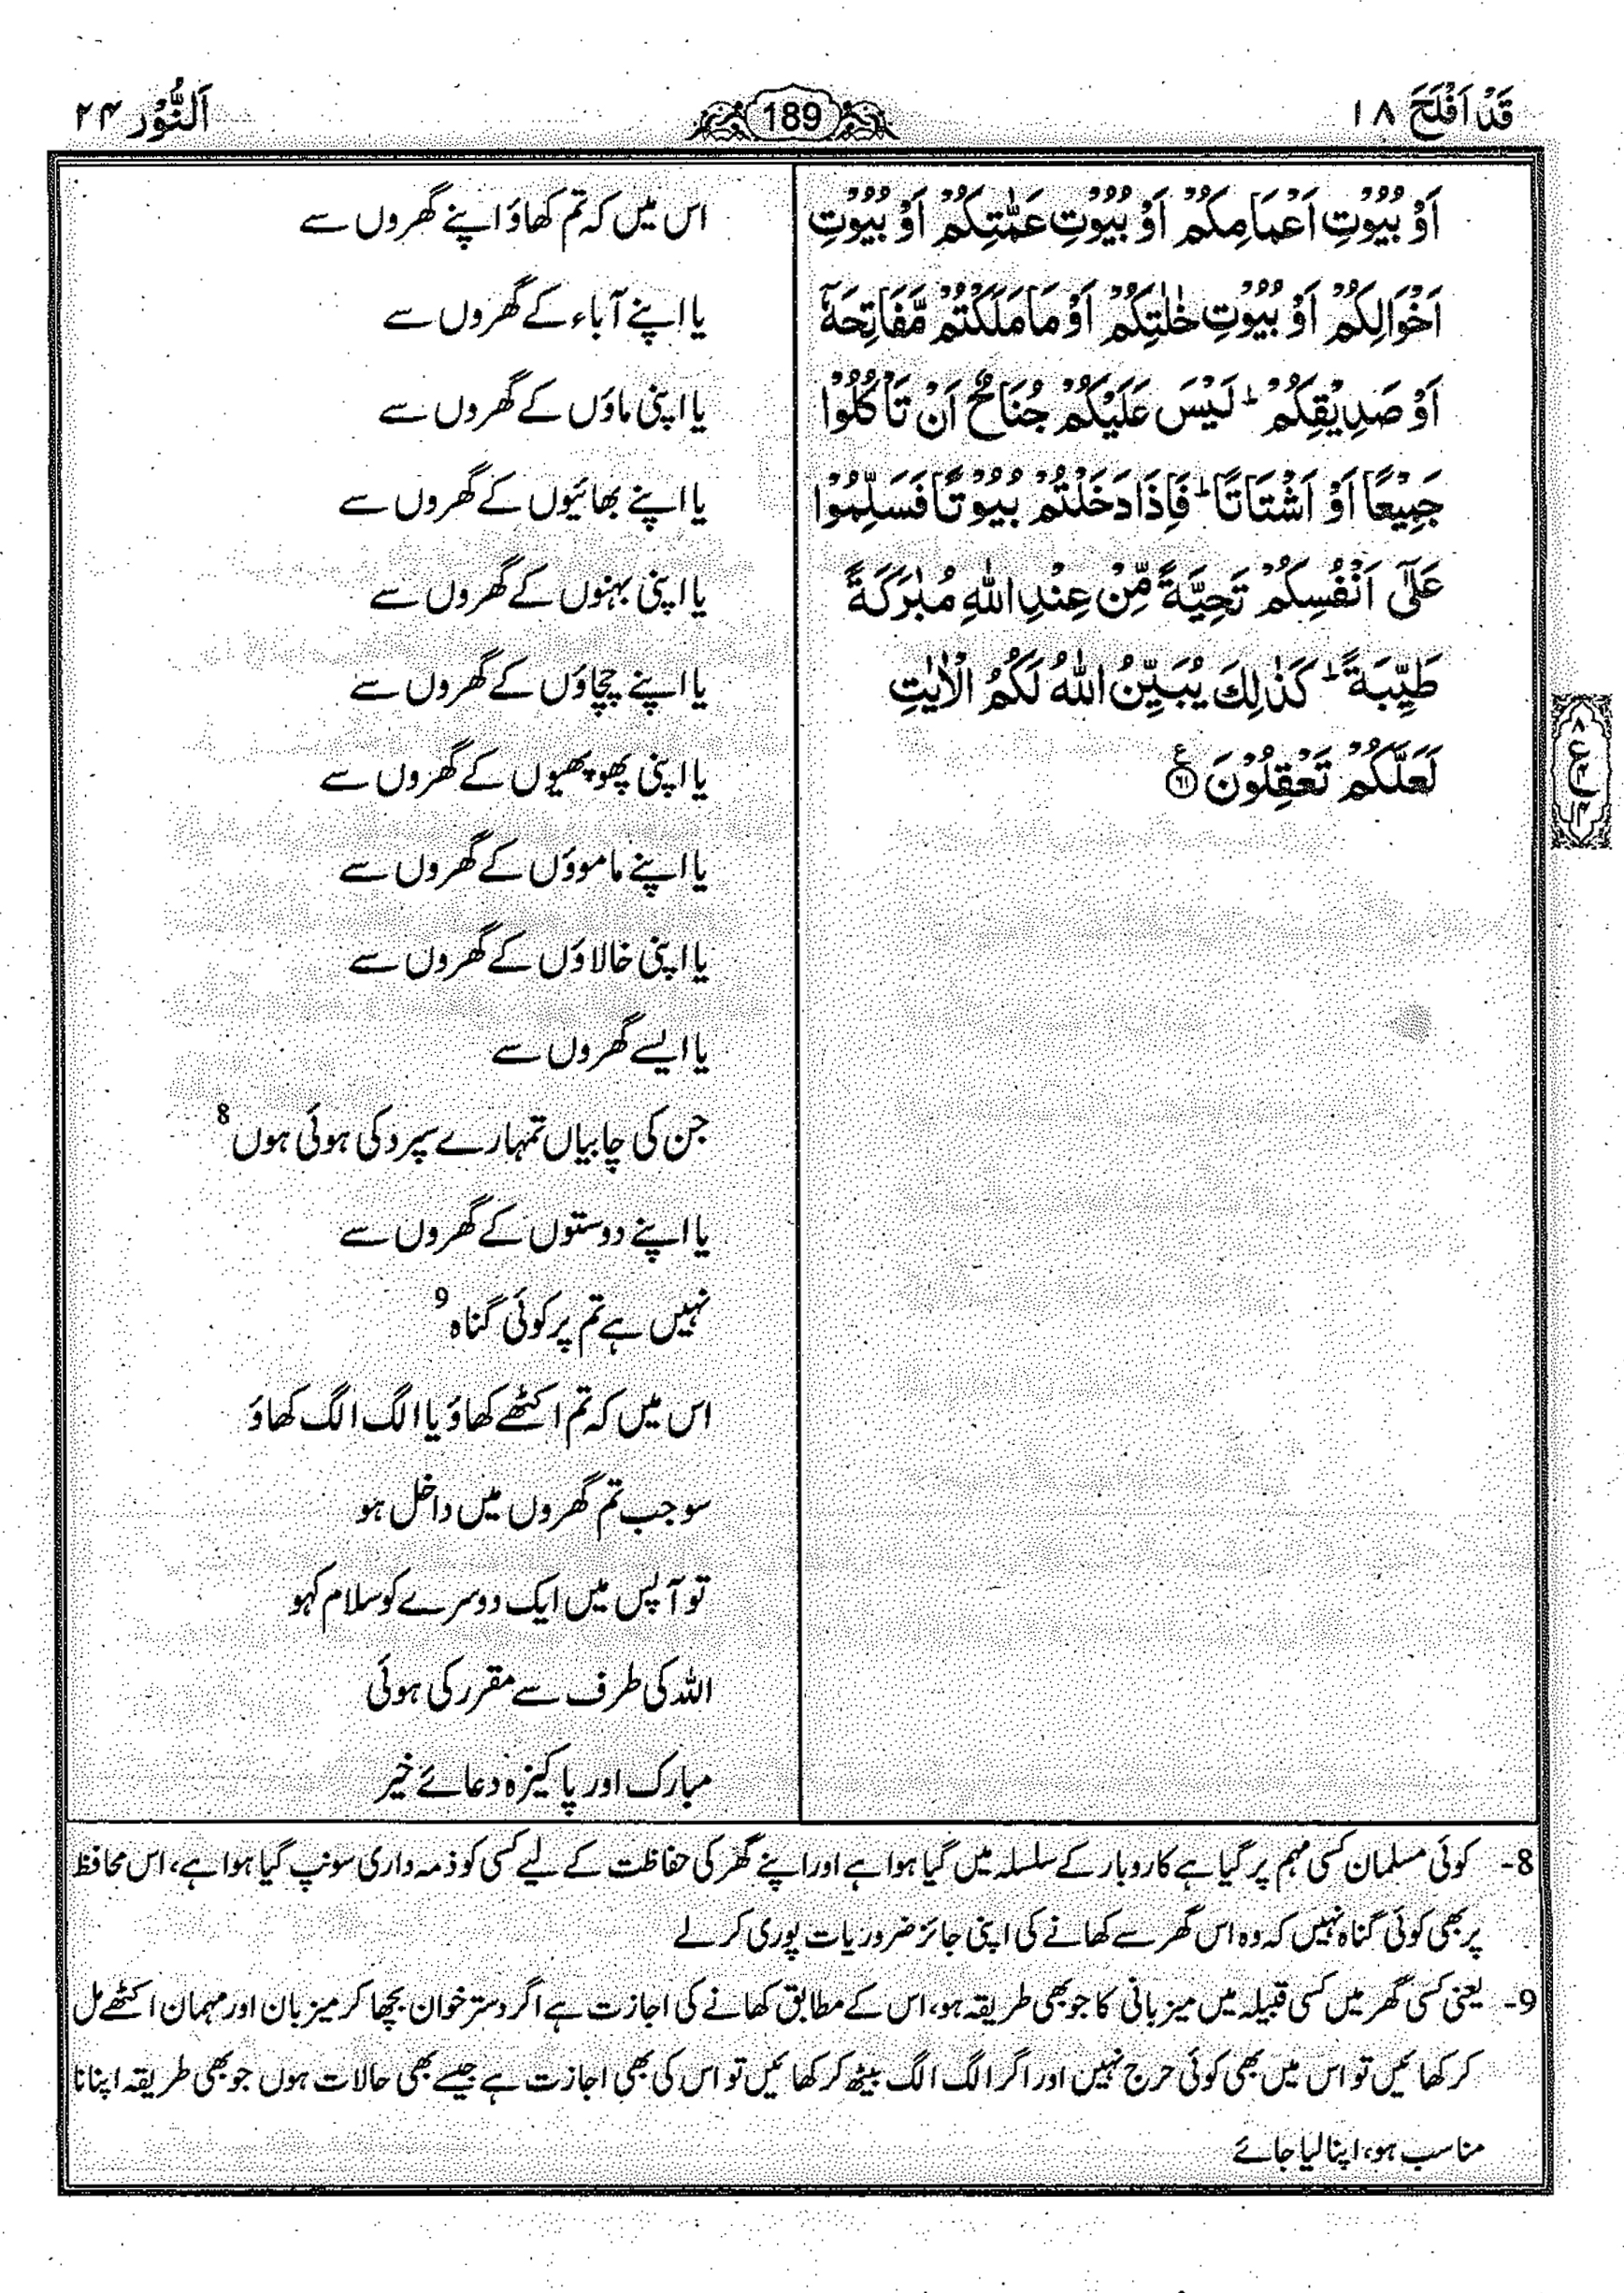 قَدْ اَفْلَحَ ۱۸
189
اَلنُّوْر ۲۴
اَوْ بُيُوْتِ اَعْمَامِكُمْ اَوْ بُيُوْتِ عَمّٰتِكُمْ اَوْ بُيُوْتِ
اَخْوَالِكُمْ اَوْ بُيُوْتِ خٰلٰتِكُمْ اَوْ مَا مَلَكْتُمْ مَّفَاتِحَهٗۤ
اَوْ صَدِيْقِكُمْ ؕ لَيْسَ عَلَيْكُمْ جُنَاحٌ اَنْ تَاْكُلُوْا
جَمِيْعًا اَوْ اَشْتَاتًا ؕ فَاِذَا دَخَلْتُمْ بُيُوْتًا فَسَلِّمُوْا
عَلٰۤى اَنْفُسِكُمْ تَحِيَّةً مِّنْ عِنْدِ اللّٰهِ مُبٰرَكَةً
طَيِّبَةً ؕ كَذٰلِكَ يُبَيِّنُ اللّٰهُ لَكُمُ الْاٰيٰتِ
لَعَلَّكُمْ تَعْقِلُوْنَ ۶۱ ع
اس میں کہ تم کھاؤ اپنے گھروں سے
یا اپنے آباء کے گھروں سے
یا اپنی ماؤں کے گھروں سے
یا اپنے بھائیوں کے گھروں سے
یا اپنی بہنوں کے گھروں سے
یا اپنے چچاؤں کے گھروں سے
یا اپنی پھوپھیوں کے گھروں سے
یا اپنے ماموؤں کے گھروں سے
یا اپنی خالاؤں کے گھروں سے
یا ایسے گھروں سے
جن کی چابیاں تمہارے سپرد کی ہوئی ہوں 8
یا اپنے دوستوں کے گھروں سے
نہیں ہے تم پر کوئی گناہ 9
اس میں کہ تم اکٹھے کھاؤ یا الگ الگ کھاؤ
سو جب تم گھروں میں داخل ہو
تو آپس میں ایک دوسرے کو سلام کہو
اللہ کی طرف سے مقرر کی ہوئی
مبارک اور پاکیزہ دعائے خیر
8- کوئی مسلمان کسی مہم پر گیا ہے کاروبار کے سلسلہ میں گیا ہوا ہے اور اپنے گھر کی حفاظت کے لیے کسی کو ذمہ داری سونپ گیا ہوا ہے، اس محافظ
پر بھی کوئی گناہ نہیں کہ وہ اس گھر سے کھانے کی اپنی جائز ضروریات پوری کر لے
9- یعنی کسی گھر میں کسی قبیلہ میں میزبانی کا جو بھی طریقہ ہو، اس کے مطابق کھانے کی اجازت ہے اگر دسترخوان بچھا کر میزبان اور مہمان اکٹھے مل
کر کھائیں تو اس میں بھی کوئی حرج نہیں اور اگر الگ الگ بیٹھ کر کھائیں تو اس کی بھی اجازت ہے جیسے بھی حالات ہوں جو بھی طریقہ اپنانا
مناسب ہو، اپنا لیا جائے